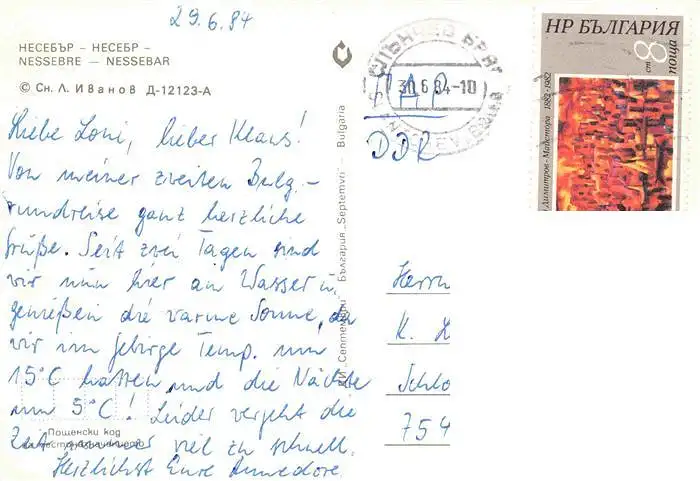 29.6.84
НЕСЕБЪР – НЕСЕБР –
NESSEBRE – NESSEBAR
© Сн. Л. Иванов Д-12123-А
Liebe Loni, lieber Klaus!
Von meiner zweiten Bulg.-
rundreise ganz herzliche
Grüße. Seit zwei Tagen sind
wir nun hier am Wasser u.
genießen die warme Sonne, da
wir im Gebirge Temp. um
15°C hatten und die Nächte
um 5°C! Leider vergeht die
Zeit immer viel zu schnell.
Herzlichst Eure Annedore.
Пощенски код
на местоназначението
ДИ „Септември“ – България „Septemvri“ – Bulgaria
СЛЪНЧЕВ БРЯГ
30.6.84-10
PAR
DDR
Herrn
K. L
Schlo
754
НР БЪЛГАРИЯ
8 ст
поща
Димитров-Майстора 1882-1982